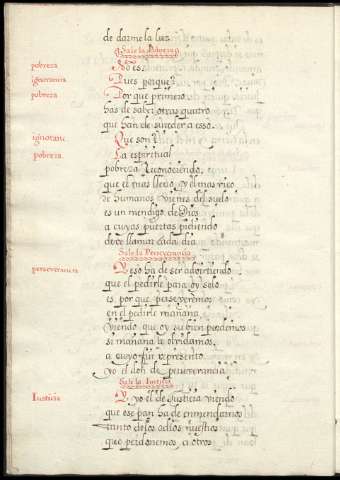 de darme la luz
Sale la Pobreza
pobreza No es.
ignorancia Pues porque?
pobreza Porque primero
has de saber otras quatro
que han de suceder a esso.
ignoranc. Que son?
pobreza. La espiritual
pobreza Reconociendo,
que el mas lleno, y el mas rico
de humanos vienes del suelo
es un mendigo de Dios
a cuyas puertas pidiendo
deve llamar cada dia
Sale la Perseverancia
perseverancia Y eso ha de ser advirtiendo
que el pedirle para oy solo
es, por que perseveremos
en el pedirle mañana
viendo que oy su bien perdemos
si mañana le olvidamos,
a cuyo fin represento
yo el don de perseverancia
Sale la Justicia
Iusticia Y yo el de Justicia viendo
que ese pan ha de enmendarnos
tanto de los odios nuestros
que perdonemos a otros